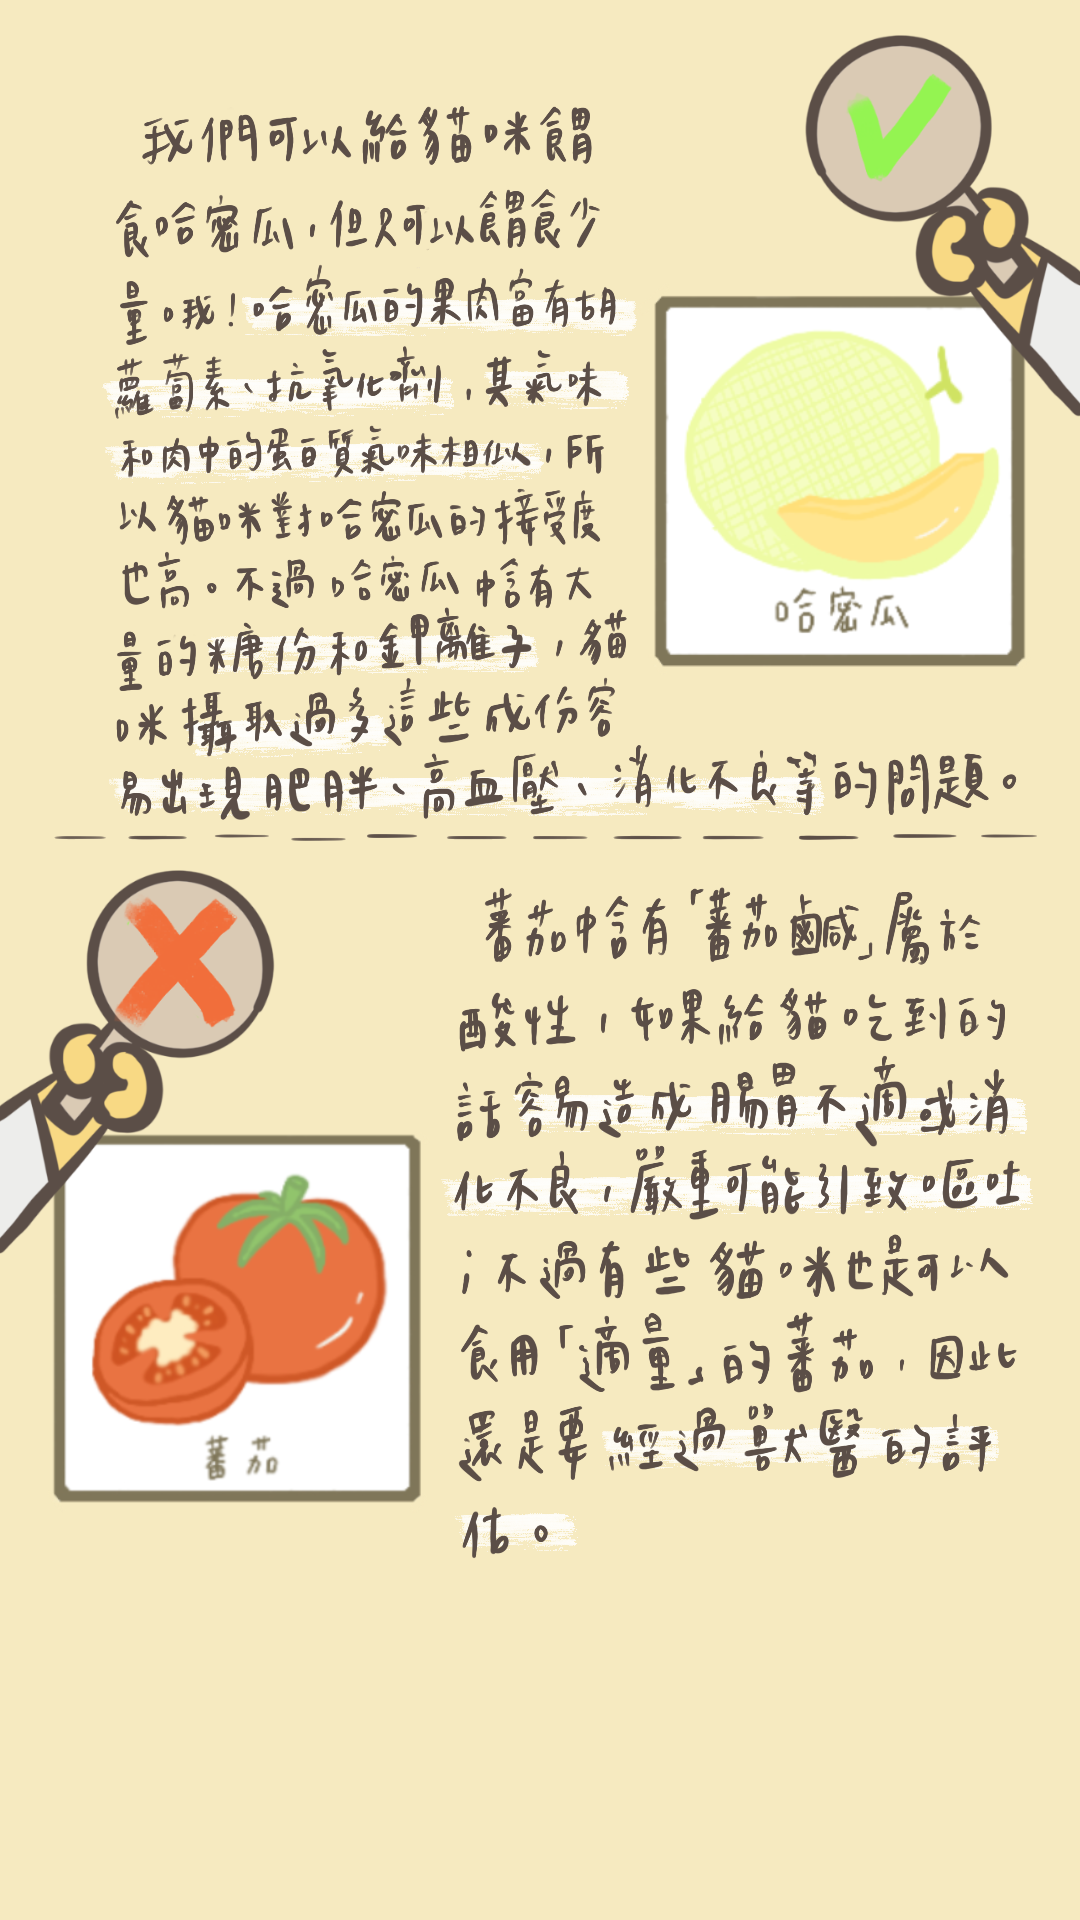 我們可以給貓咪餵
食哈密瓜，但只可以餵食少
量哦！哈密瓜的果肉富有胡
蘿蔔素、抗氧化劑，其氣味
和肉中的蛋白質氣味相似，所
以貓咪對哈密瓜的接受度
也高。不過哈密瓜中含有大
量的糖份和鉀離子，貓
咪攝取過多這些成份容
易出現肥胖、高血壓、消化不良等的問題。
哈密瓜
蕃茄中含有「蕃茄鹹」屬於
酸性，如果給貓吃到的
話容易造成腸胃不適或消
化不良，嚴重可能引致嘔吐
；不過有些貓咪也是可以
食用「適量」的蕃茄，因此
還是要經過獸醫的評
估。
蕃茄